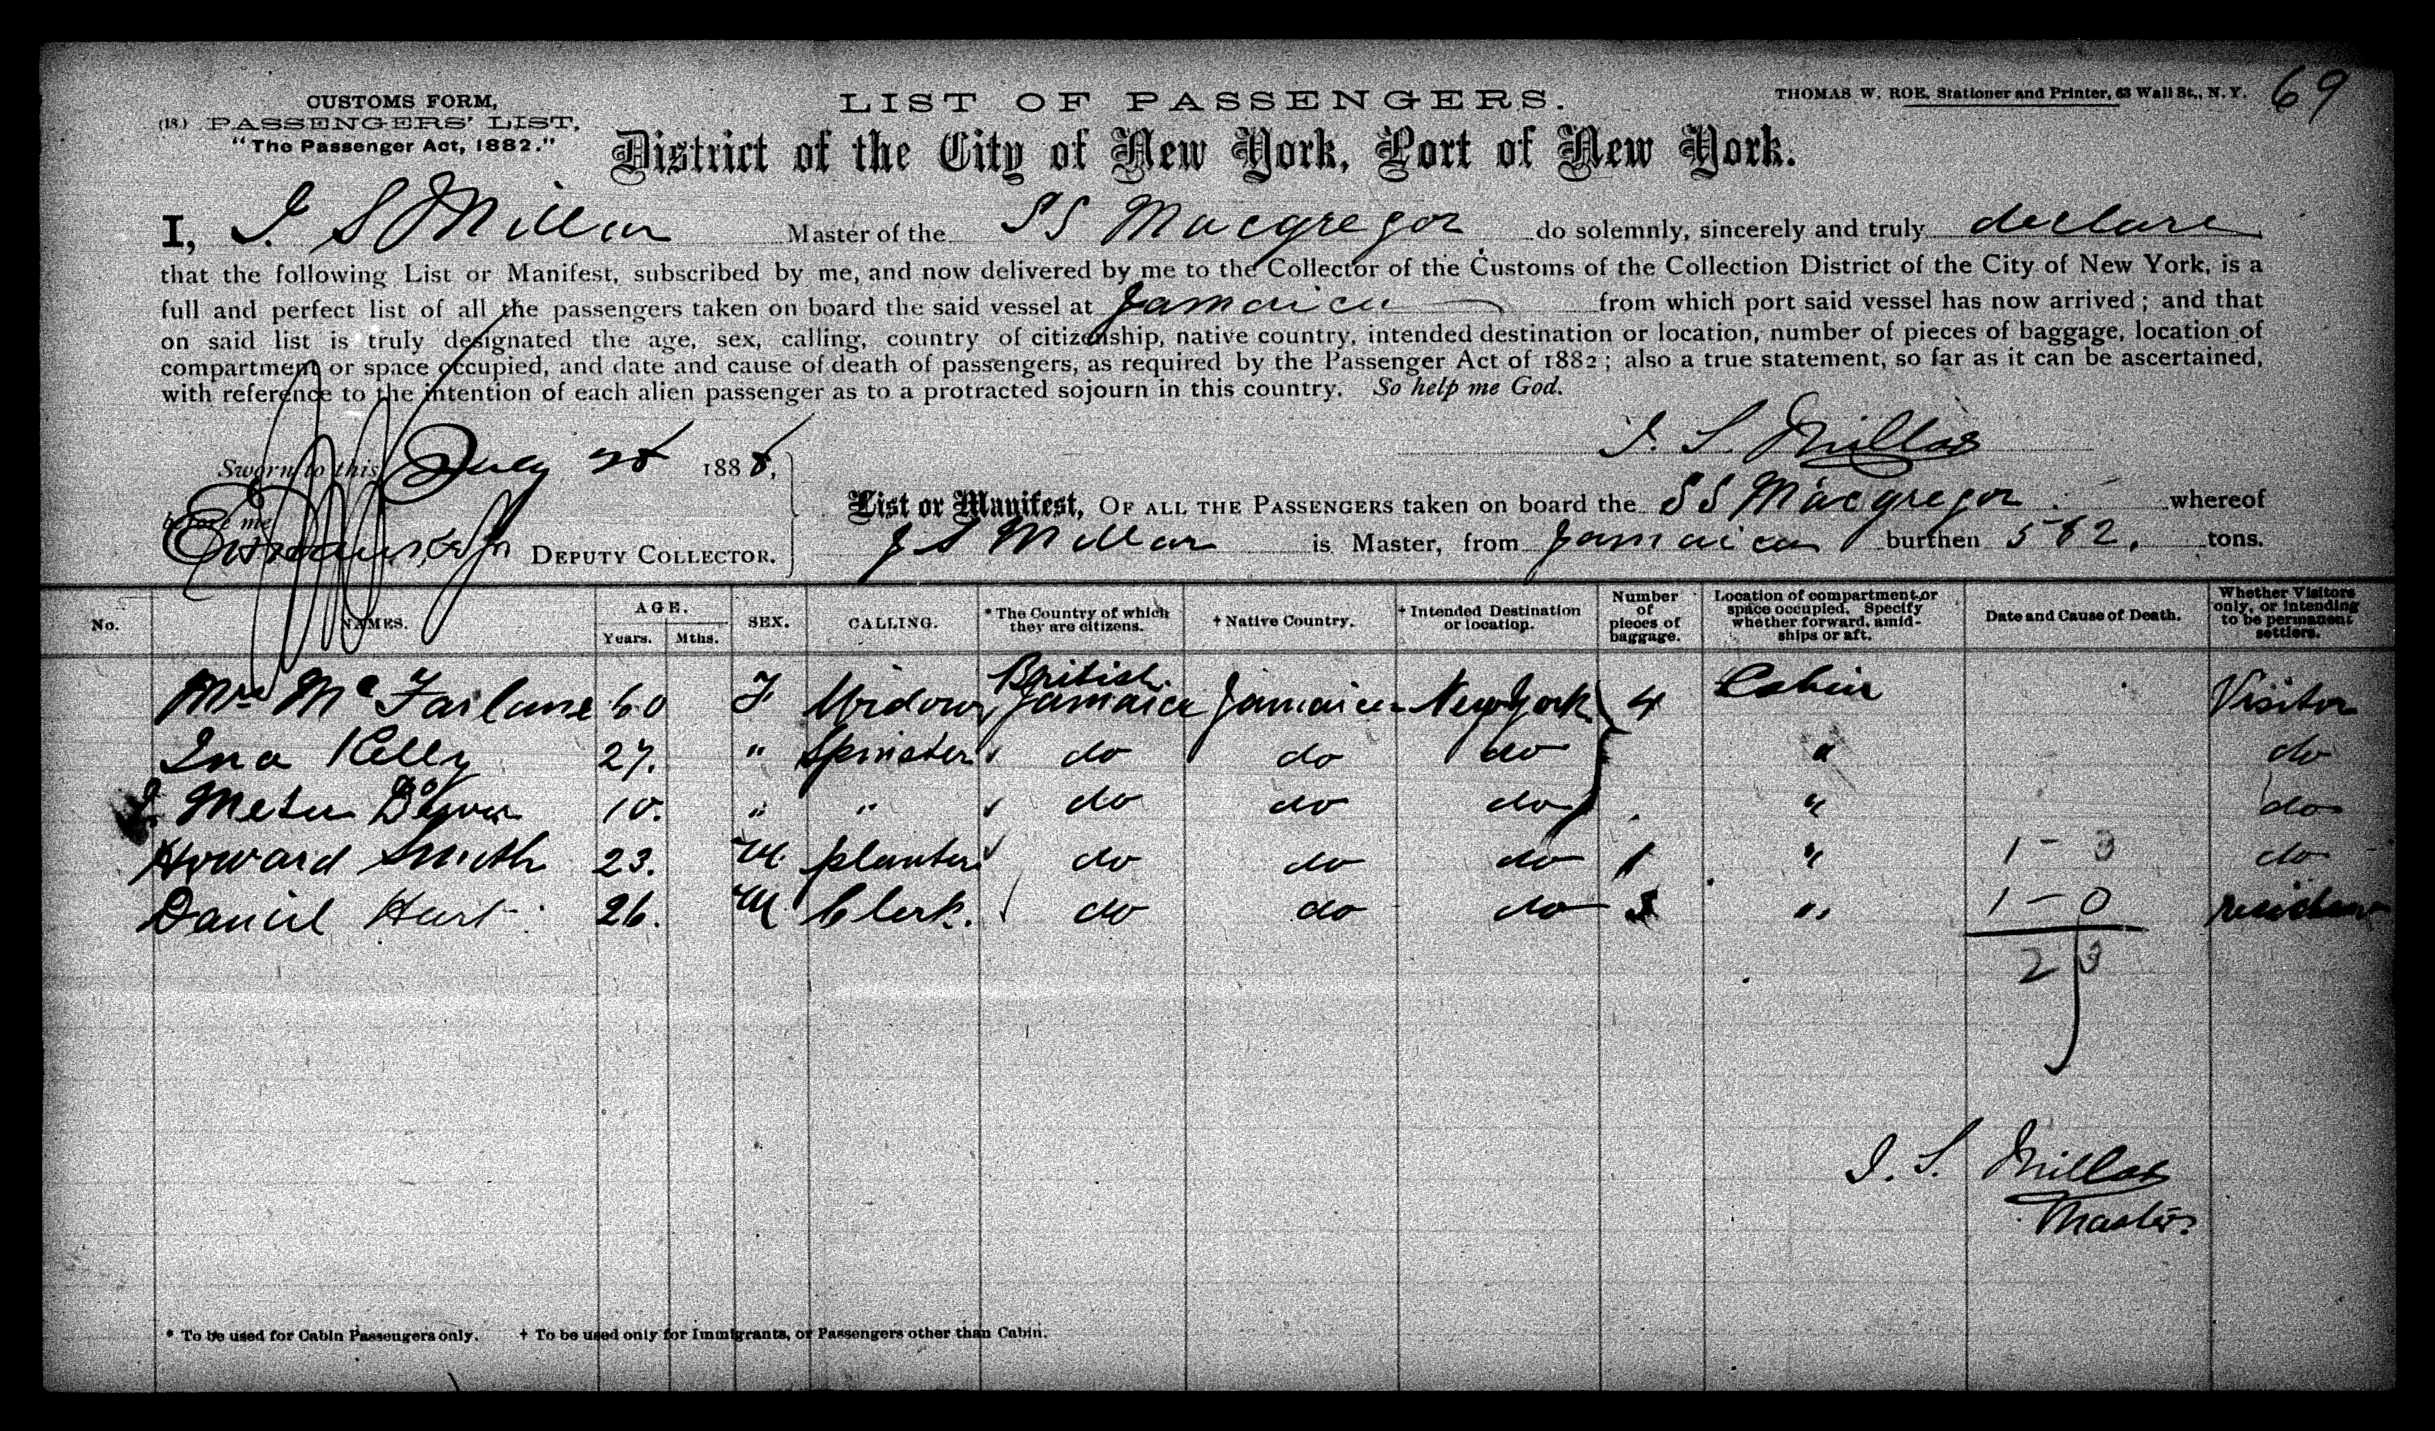 CUSTOMS FORM,
(18.) PASSENGERS' LIST,
"The Passenger Act, 1882."
LIST OF PASSENGERS.
THOMAS W. ROE, Stationer and Printer, 63 Wall St., N. Y.
69
District of the City of New York, Port of New York.
I, J. S Millar Master of the SS Macgregor do solemnly, sincerely and truly declare
that the following List or Manifest, subscribed by me, and now delivered by me to the Collector of the Customs of the Collection District of the City of New York, is a
full and perfect list of all the passengers taken on board the said vessel at Jamaica from which port said vessel has now arrived; and that
on said list is truly designated the age, sex, calling, country of citizenship, native country, intended destination or location, number of pieces of baggage, location of
compartment or space occupied, and date and cause of death of passengers, as required by the Passenger Act of 1882; also a true statement, so far as it can be ascertained,
with reference to the intention of each alien passenger as to a protracted sojourn in this country. So help me God.
J. S. Millar
Sworn to this 1888,
before me
DEPUTY COLLECTOR.
List or Manifest, OF ALL THE PASSENGERS taken on board the SS Macgregor whereof
J S Millar is Master, from Jamaica burthen 582. tons.
No. NAMES. AGE. Years. Mths. SEX. CALLING. * The Country of which they are citizens. † Native Country. † Intended Destination or location. Number of pieces of baggage. Location of compartment or space occupied. Specify whether forward, amidships or aft. Date and Cause of Death. Whether Visitors only, or intending to be permanent settlers.
Mrs McFarlane 60 F Widow British Jamaica Jamaica New York 4 Cabin Visitor
Ina Kelly 27. " Spinster do do do " do
Meta 10. " " do do do " do
Howard Smith 23. M planter do do do 1 " 1 - 3 do
Daniel Hart 26. M Clerk. do do do " 1 - 0
2 3
J. S. Millar
Master.
* To be used for Cabin Passengers only. † To be used only for Immigrants, or Passengers other than Cabin.